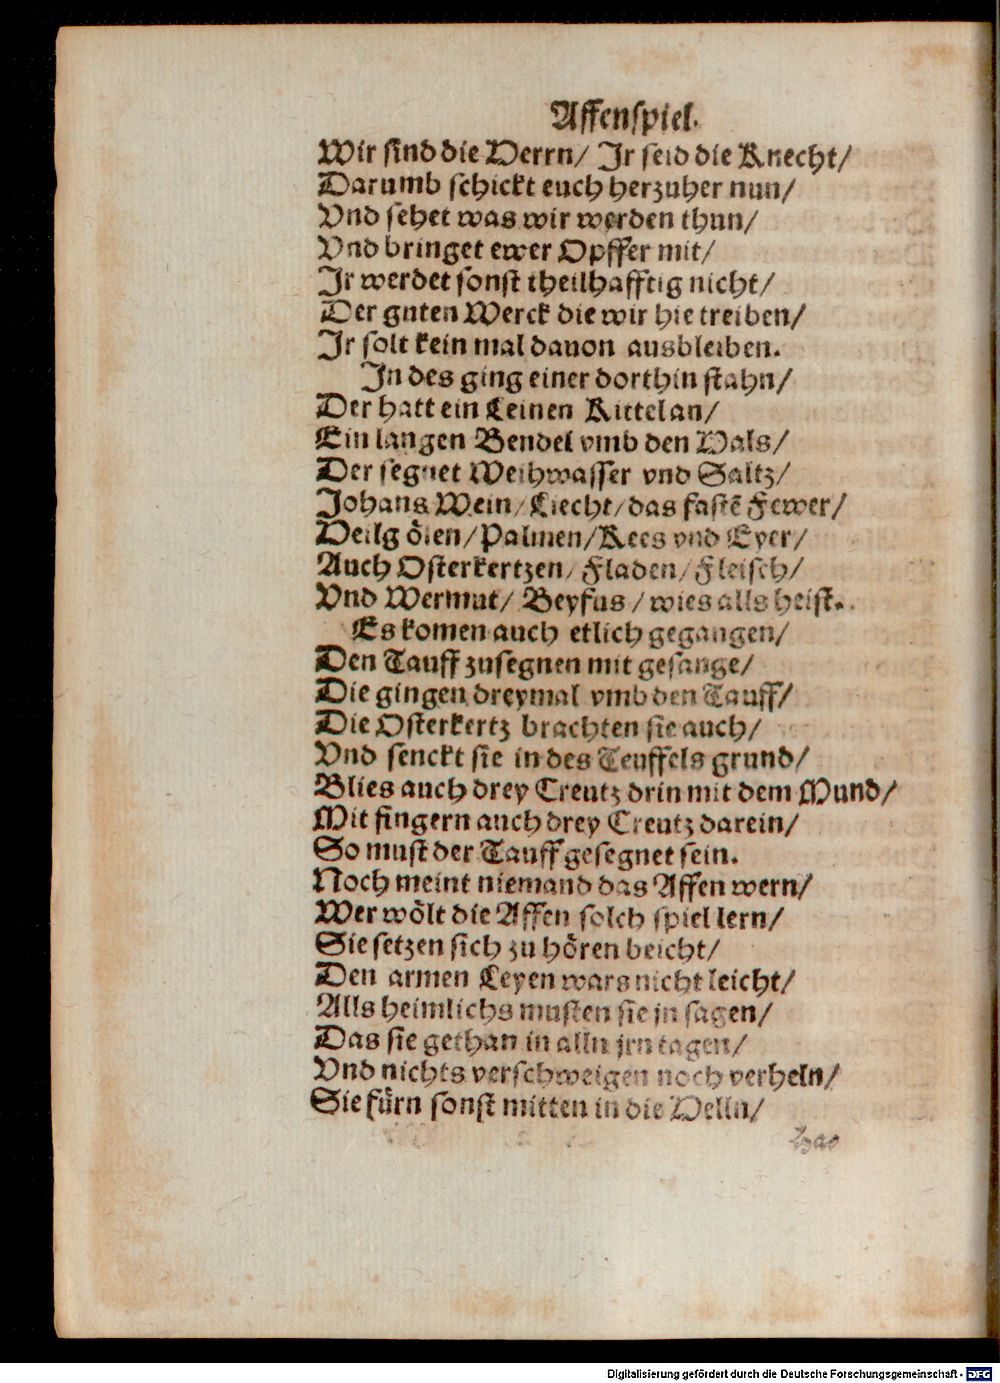 Affenspiel.
Wir sind die Herrn/ Jr seid die Knecht/
Darumb schickt euch herzuher nun/
Vnd sehet was wir werden thun/
Vnd bringet ewer Opffer mit/
Jr werdet sonst theilhafftig nicht/
Der guten Werck die wir hie treiben/
Jr solt kein mal dauon ausbleiben.
Jn des ging einer dorthin stahn/
Der hatt ein Leinen Kittel an/
Ein langen Bendel vmb den Hals/
Der segnet Weihwasser vnd Saltz/
Johans Wein/ Liecht/ das fastē Fewer/
Heilg ölen/ Palmen/ Kees vnd Eyer/
Auch Osterkertzen/ Fladen/ Fleisch/
Vnd Wermut/ Beyfus/ wies alls heist.
Es komen auch etlich gegangen/
Den Tauff zusegnen mit gesange/
Die gingen dreymal vmb den Tauff/
Die Osterkertz brachten sie auch/
Vnd senckt sie in des Teuffels grund/
Blies auch drey Creutz drin mit dem Mund/
Mit fingern auch drey Creutz darein/
So must der Tauff gesegnet sein.
Noch meint niemand das Affen wern/
Wer wölt die Affen solch spiel lern/
Sie setzen sich zu hören beicht/
Den armen Leyen wars nicht leicht/
Alls heimlichs musten sie jn sagen/
Das sie gethan in alln jrn tagen/
Vnd nichts verschweigen noch verheln/
Sie fürn sonst mitten in die Helln/
Digitalisierung gefördert durch die Deutsche Forschungsgemeinschaft - DFG